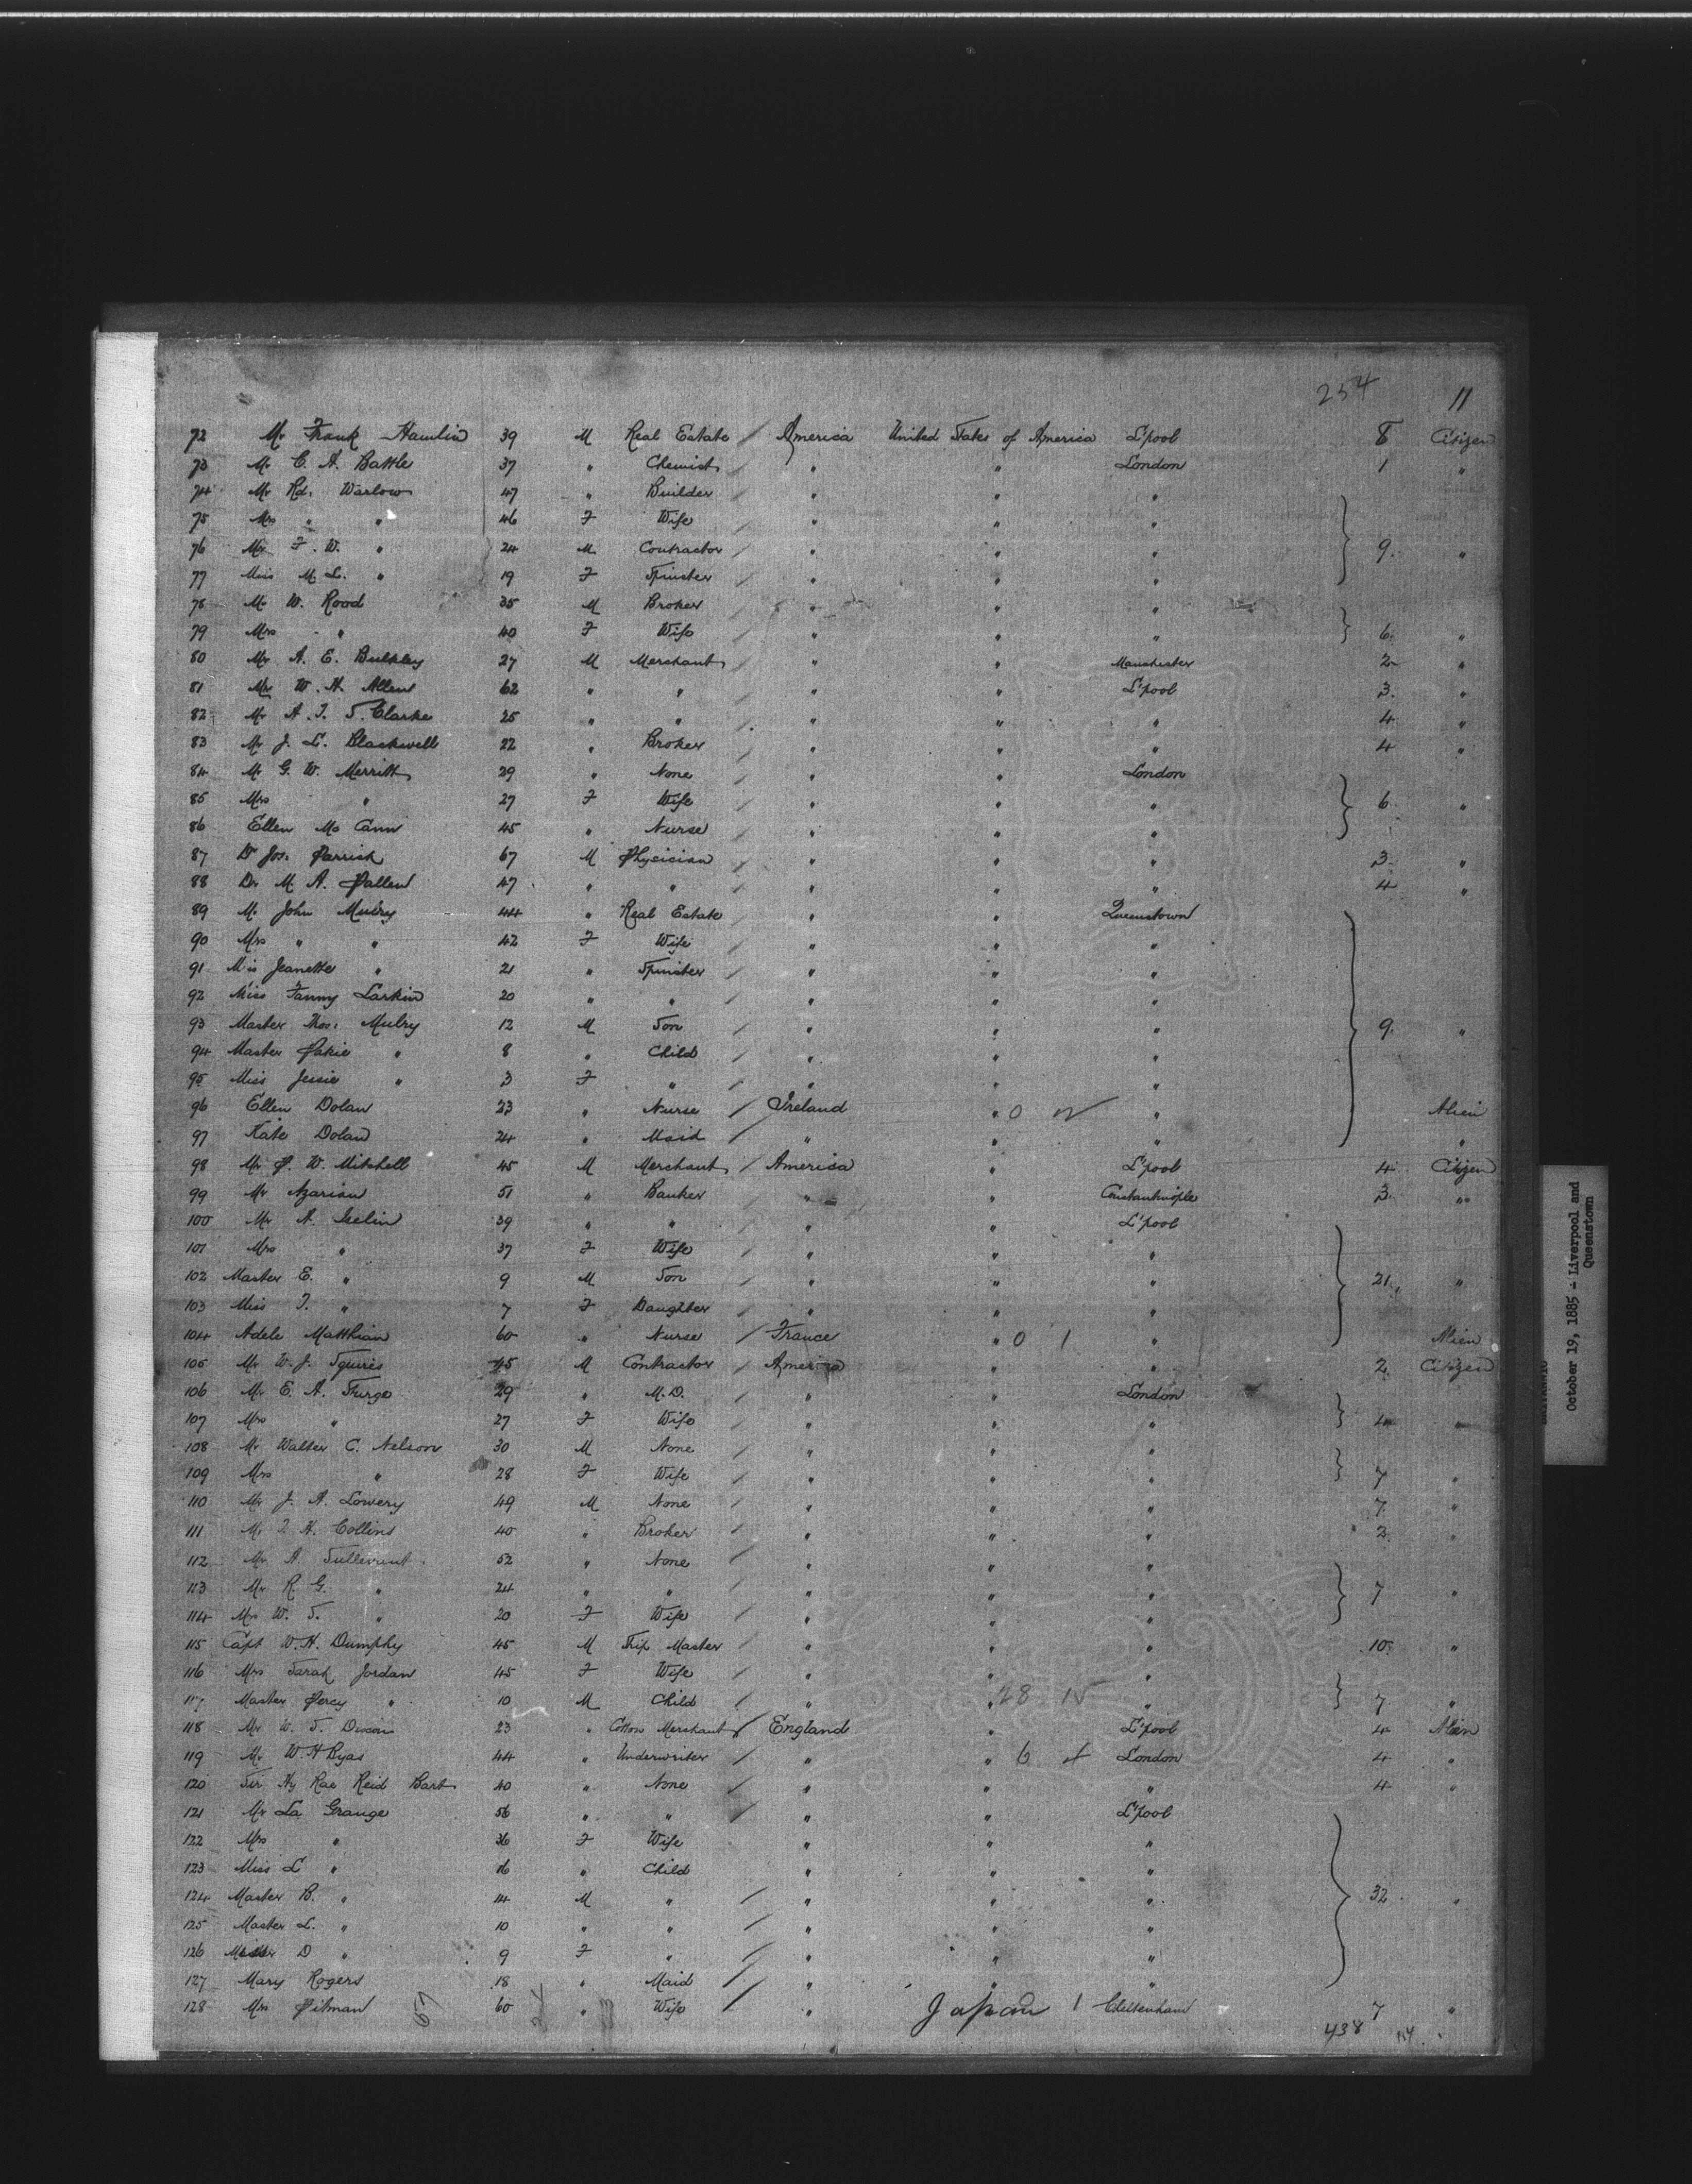 254 11
72 Mr Frank Hamlin 39 M Real Estate / America United States of America L'pool 8 Citizen
73 Mr C. A. Battle 37 " Chemist / " " London 1 "
74 Mr Rd. Warlow 47 " Builder / " " "
75 Mrs " " 46 F Wife / " " "
76 Mr F. W. " 24 M Contractor / " " " 9 "
77 Miss M. L. " 19 F Spinster / " " "
78 Mr W. Rood 35 M Broker / " " "
79 Mrs " 40 F Wife / " " " 6 "
80 Mr A. E. Bulkley 27 M Merchant / " " Manchester 2 "
81 Mr W. H. Allen 62 " " / " " L'pool 3 "
82 Mr A. J. S. Clarke 25 " " " " " 4 "
83 Mr J. L. Blackwell 22 " Broker / " " " 4 "
84 Mr G. W. Merritt 29 " None / " " London
85 Mrs " 27 F Wife / " " " 6 "
86 Ellen Mc Cann 45 " Nurse / " " "
87 Dr Jos. Parrish 67 M Physician / " " " 3 "
88 Dr M. A. Pallen 47 " " / " " " 4 "
89 Mr John Mulry 44 " Real Estate " " Queenstown
90 Mrs " " 42 F Wife / " " "
91 Mis Jeanette " 21 " Spinster / " " "
92 Miss Fanny Larkin 20 " " / " " "
93 Master Thos. Mulry 12 M Son / " " " 9 "
94 Master Pakie " 8 " Child / " " "
95 Miss Jessie " 3 F " / " " "
96 Ellen Dolan 23 " Nurse / Ireland " 0 " Alien
97 Kate Dolan 24 " Maid / " " " "
98 Mr P. W. Mitchell 45 M Merchant / America " L'pool 4 Citizen
99 Mr Azarian 51 " Banker / " " Constantinople 3 "
100 Mr A. Iselin 39 " " / " " L'pool
101 Mrs " 37 F Wife / " " "
102 Master E. " 9 M Son / " " " 21 "
103 Miss T. " 7 F Daughter / " " "
104 Adele Matthian 60 " Nurse / France " 0 1 " Alien
105 Mr W. J. Squires 45 M Contractor / America " " 2 Citizen
106 Mr E. A. 29 " M.D. / " " London
107 Mrs " 27 F Wife / " " " 4 "
108 Mr Walter C. Nelson 30 M None / " " "
109 Mrs " 28 F Wife / " " " 7 "
110 Mr J. A. Lowery 49 M None / " " " 7 "
111 Mr H. Collins 40 " Broker / " " "
112 Mr A. 52 " None / " " "
113 Mr R. G. " 24 " " / " " " 7 "
114 Mrs W. S. " 20 F Wife / " " "
115 Capt W. H. Dumphy 45 M Ship Master / " " " 10 "
116 Mrs Sarah Jordan 45 F Wife / " " "
117 Master Percy " 10 M Child / " " 28 15 " 7 "
118 Mr W. S. Dixon 23 " Cotton Merchant / England " L'pool 4 Alien
119 Mr W. H Byas 44 " Underwriter / " " 6 London 4 "
120 Sir Hy Rae Reid Bart 40 " None / " " " 4 "
121 Mr La Grange 56 " " / " " L'pool
122 Mrs " 36 F Wife " " "
123 Miss L " 16 " Child " " "
124 Master B. " 14 M " / " " " 32 "
125 Master L. " 10 " " / " " "
126 D " 9 F " / " " "
127 Mary Rogers 18 " Maid / " " "
128 Mrs Pitman 60 " Wife / " Japan 1 Cheltenham 7 "
67 438
October 19, 1885 - Liverpool and
Queenstown